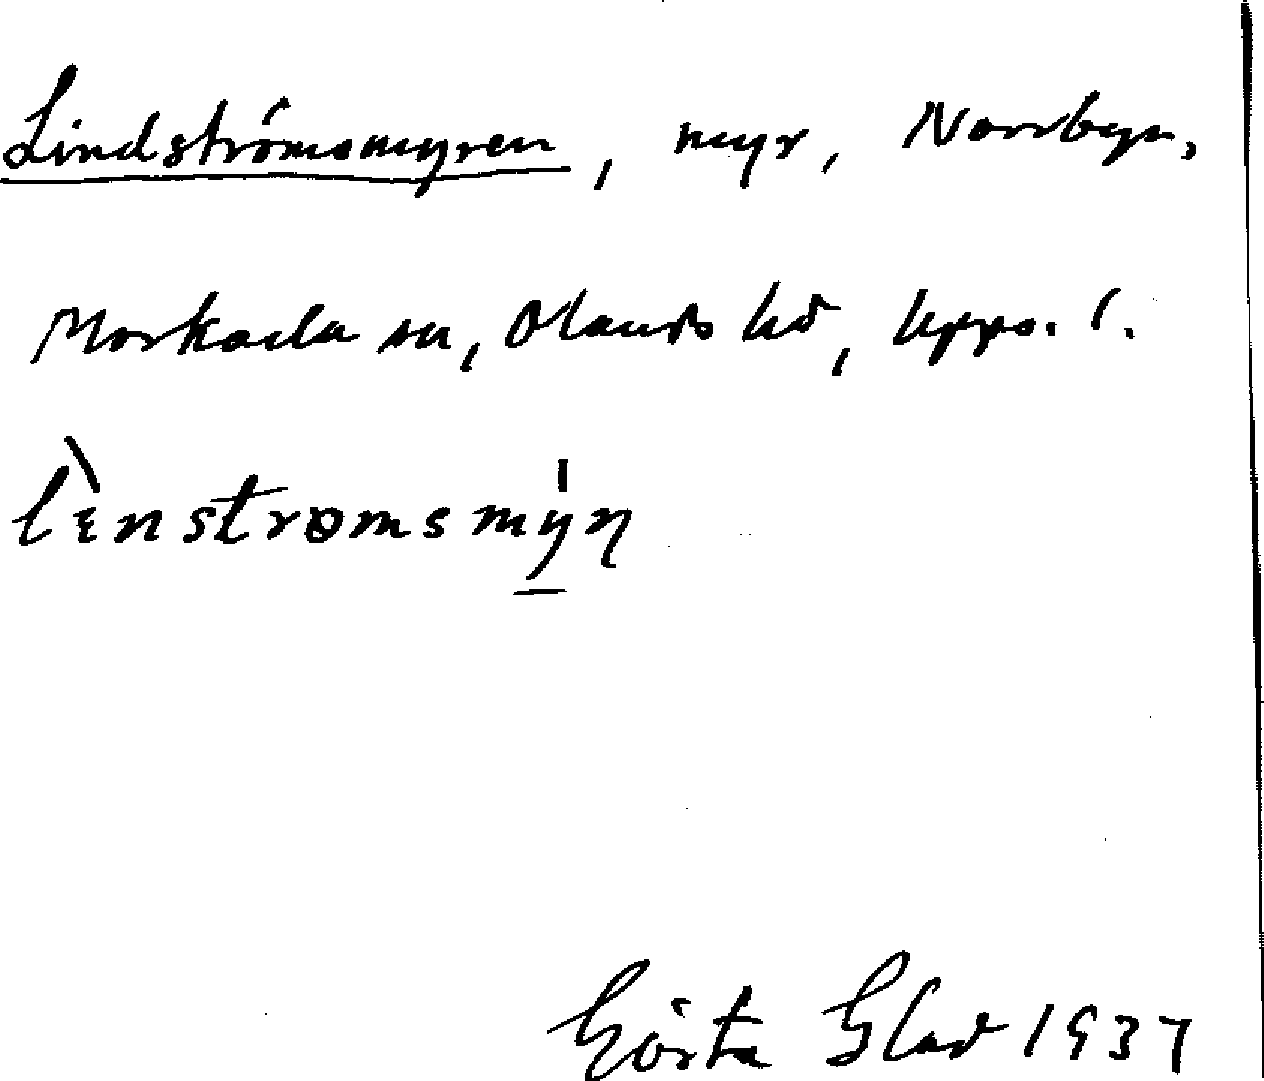 Lindströmsmyren, myr, Norrbyn,
Morkarla sn, Olands hd, Upps. l.
lɪ̀nstrømsmy̠̍n
Gösta Glad 1937